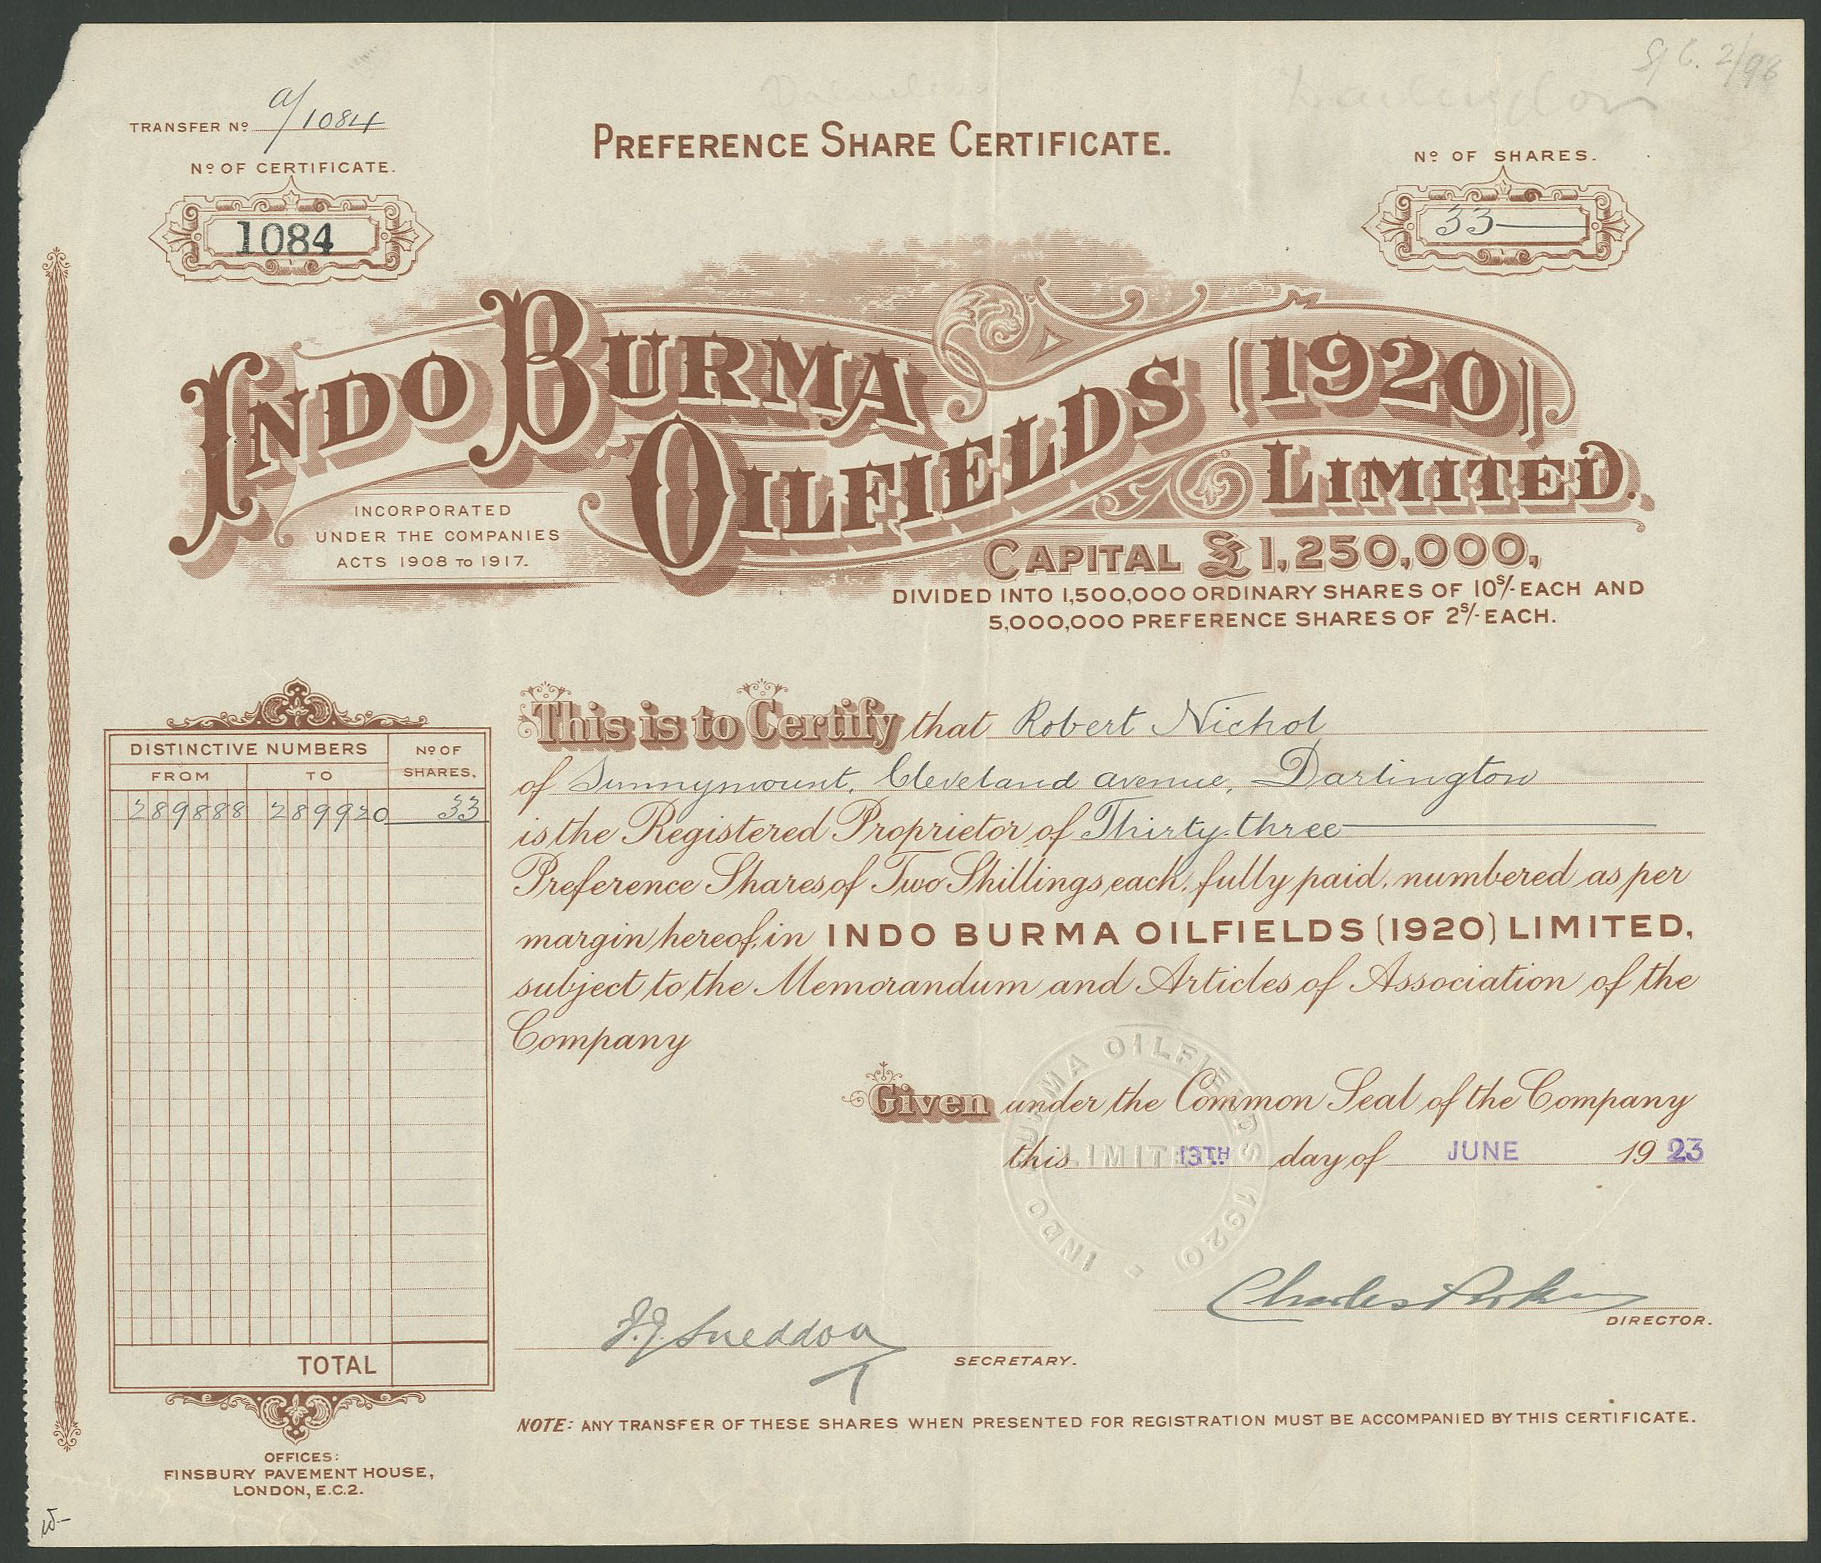 TRANSFER Nº a/1084
Nº OF CERTIFICATE.
1084
PREFERENCE SHARE CERTIFICATE.
2/98
Nº OF SHARES.
33
INDO BURMA
OILFIELDS (1920)
LIMITED.
INCORPORATED
UNDER THE COMPANIES
ACTS 1908 TO 1917.
CAPITAL £1,250,000,
DIVIDED INTO 1,500,000 ORDINARY SHARES OF 10s/- EACH AND
5,000,000 PREFERENCE SHARES OF 2s/- EACH.
DISTINCTIVE NUMBERS
Nº OF SHARES.
FROM TO
289888 289920 33
TOTAL
This is to Certify that Robert Nichol
of Sunnymount, Cleveland avenue, Darlington
is the Registered Proprietor of Thirty-three
Preference Shares of Two Shillings each, fully paid, numbered as per
margin hereof, in INDO BURMA OILFIELDS (1920) LIMITED,
subject to the Memorandum and Articles of Association of the
Company
Given under the Common Seal of the Company
this 13TH day of JUNE 1923
INDO BURMA OILFIELDS (1920)
LIMITED
DIRECTOR.
J.J. Sneddon
SECRETARY.
NOTE: ANY TRANSFER OF THESE SHARES WHEN PRESENTED FOR REGISTRATION MUST BE ACCOMPANIED BY THIS CERTIFICATE.
OFFICES:
FINSBURY PAVEMENT HOUSE,
LONDON, E.C.2.